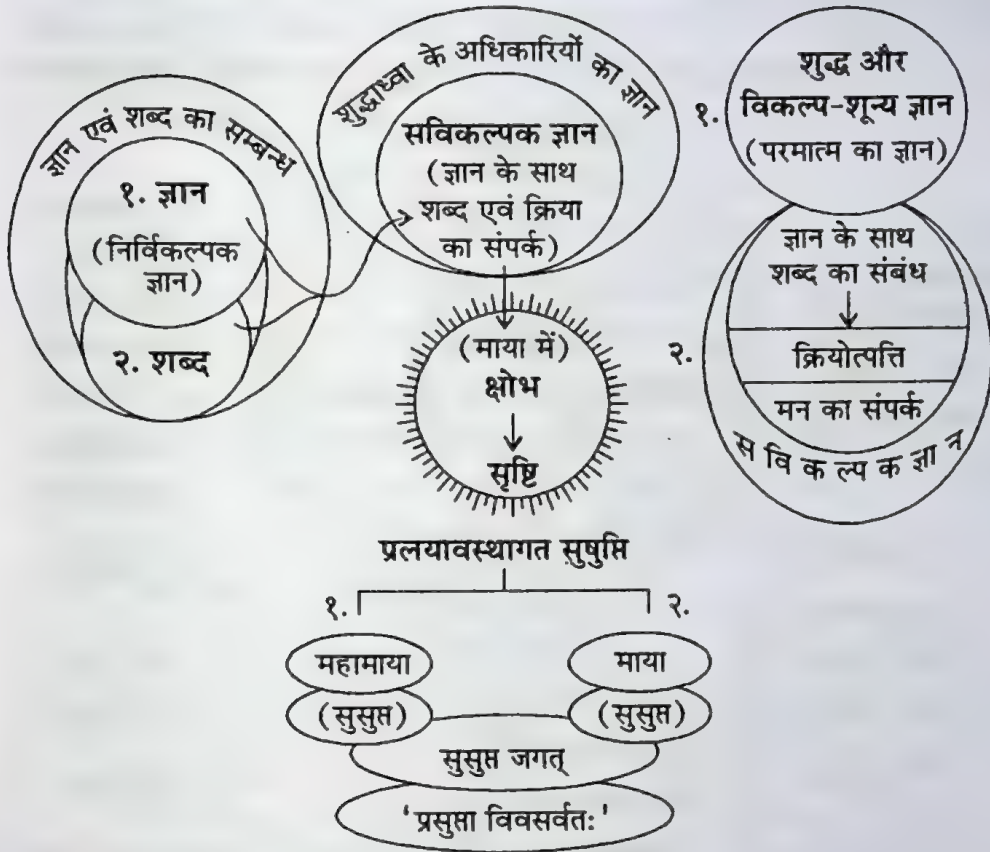 ज्ञान एवं शब्द का सम्बन्ध
१. ज्ञान
(निर्विकल्पक
ज्ञान)
२. शब्द
शुद्धाध्वा के अधिकारियों का ज्ञान
सविकल्पक ज्ञान
(ज्ञान के साथ
शब्द एवं क्रिया
का संपर्क)
(माया में)
क्षोभ
सृष्टि
१.
शुद्ध और
विकल्प-शून्य ज्ञान
(परमात्म का ज्ञान)
२.
ज्ञान के साथ
शब्द का संबंध
क्रियोत्पत्ति
मन का संपर्क
स वि क ल्प क ज्ञा न
प्रलयावस्थागत सुषुप्ति
१.
२.
महामाया
माया
(सुसुप्त)
(सुसुप्त)
सुसुप्त जगत्
'प्रसुप्ता विवसर्वतः'